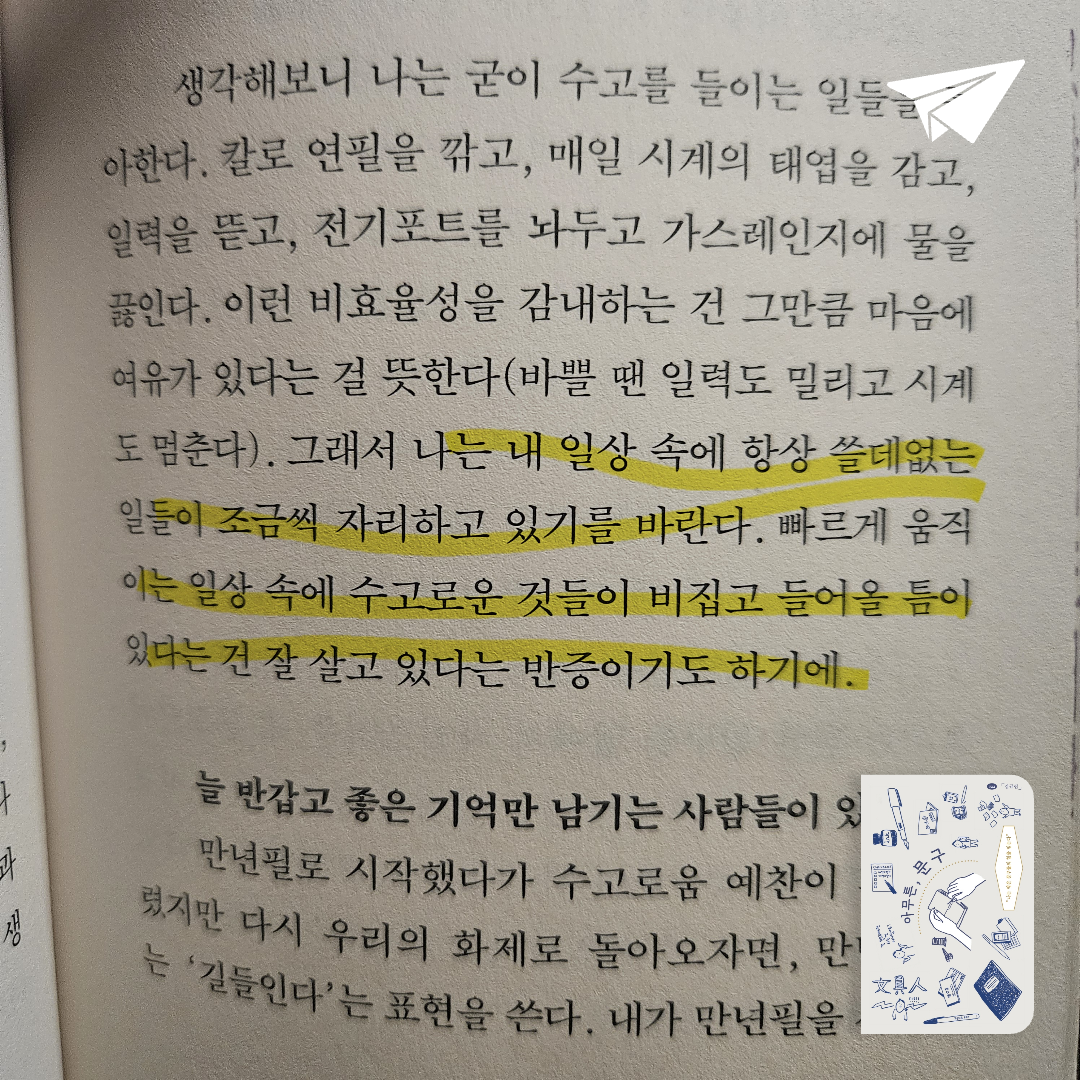 생각해보니 나는 굳이 수고를 들이는 일들을
아한다. 칼로 연필을 깎고, 매일 시계의 태엽을 감고,
일력을 뜯고, 전기포트를 놔두고 가스레인지에 물을
끓인다. 이런 비효율성을 감내하는 건 그만큼 마음에
여유가 있다는 걸 뜻한다(바쁠 땐 일력도 밀리고 시계
도 멈춘다). 그래서 나는 내 일상 속에 항상 쓸데없는
일들이 조금씩 자리하고 있기를 바란다. 빠르게 움직
이는 일상 속에 수고로운 것들이 비집고 들어올 틈이
있다는 건 잘 살고 있다는 반증이기도 하기에.
늘 반갑고 좋은 기억만 남기는 사람들이
만년필로 시작했다가 수고로움 예찬이
렀지만 다시 우리의 화제로 돌아오자면,
는 ‘길들인다’는 표현을 쓴다. 내가 만년필을
아무튼, 문구
文具人
과
생